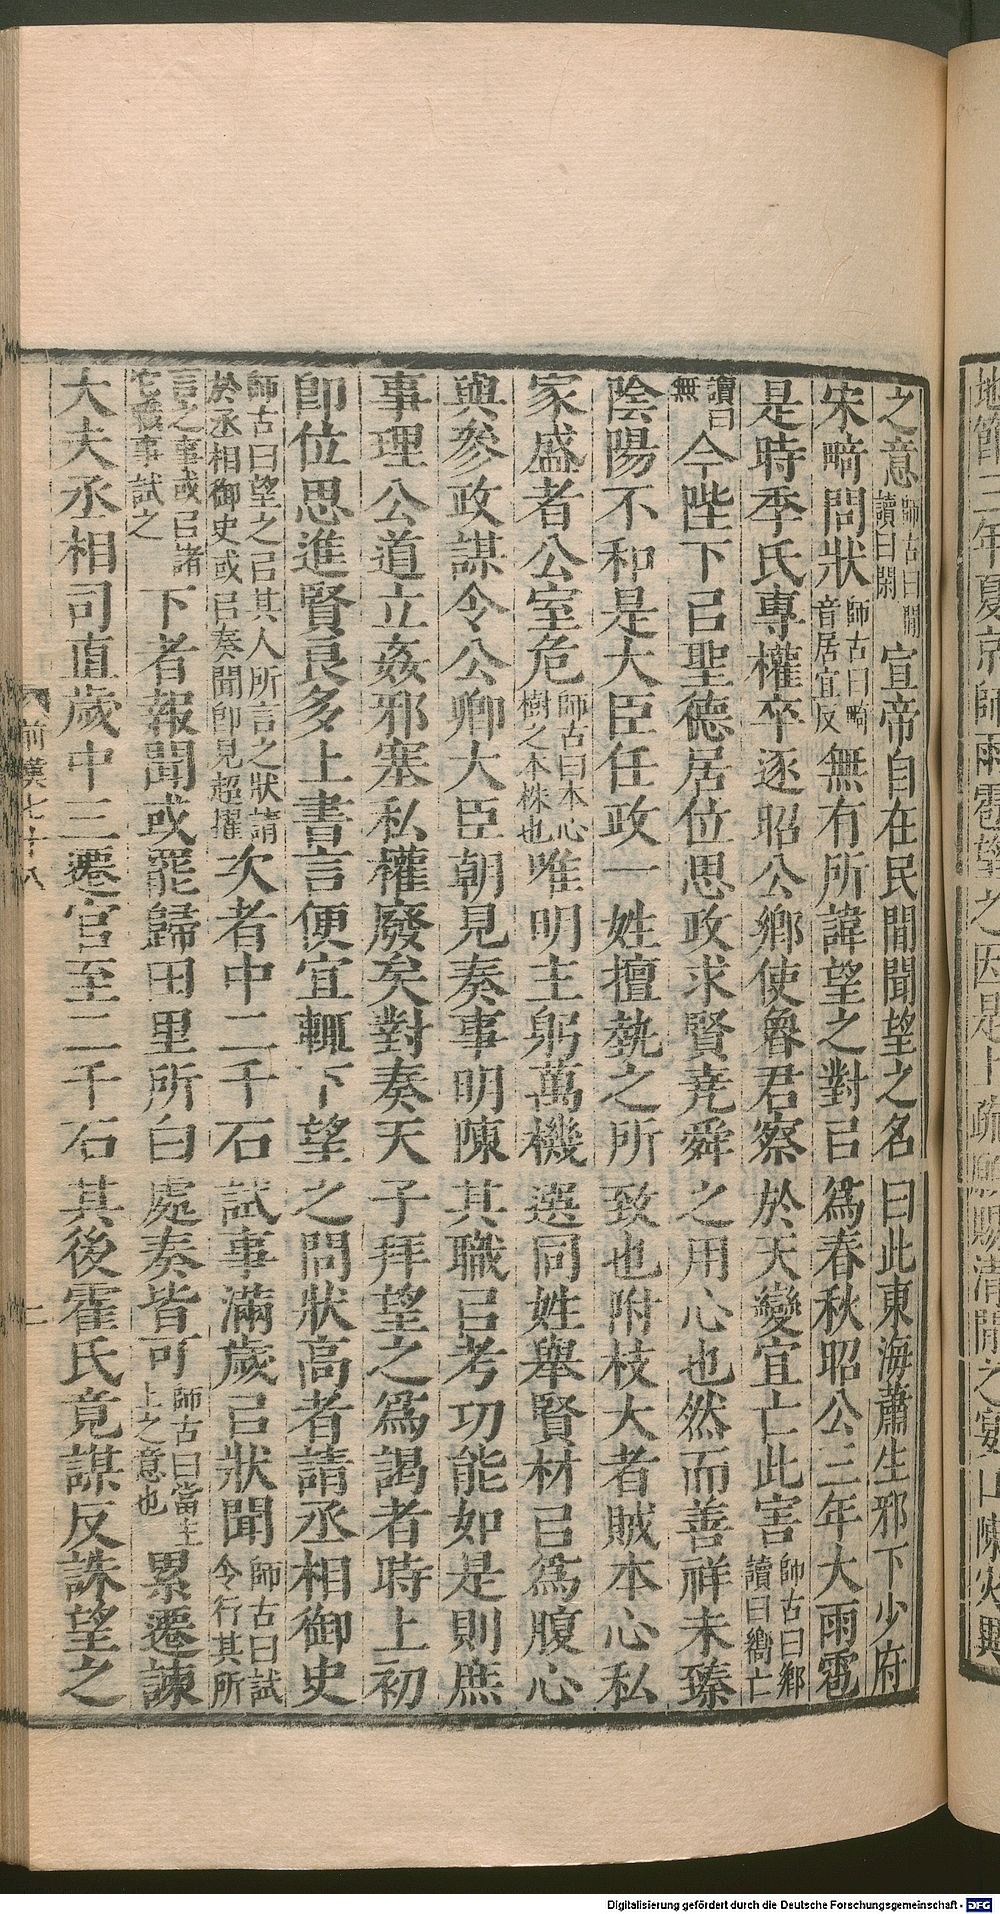 之意師古曰閒讀曰閑宣帝自在民間聞望之名曰此東海蕭生邪下少府
宋畸問狀師古曰畸音居宜反無有所諱望之對㠯爲春秋昭公三年大雨雹
是時季氏專權卒逐昭公鄉使魯君察於天變宜亡此害師古曰鄉讀曰嚮亡
讀曰無今陛下㠯聖德居位思政求賢堯舜之用心也然而善祥未臻
陰陽不和是大臣任政一姓擅埶之所致也附枝大者賊本心私
家盛者公室危師古曰本心樹之本株也唯明主躬萬機選同姓舉賢材㠯爲腹心
與參政謀令公卿大臣朝見奏事明陳其職㠯考功能如是則庶
事理公道立姦邪塞私權廢矣對奏天子拜望之爲謁者時上初
卽位思進賢良多上書言便宜輒下望之問狀高者請丞相御史
師古曰望之㠯其人所言之狀請於丞相御史或㠯奏聞卽見超擢次者中二千石試事滿歲㠯狀聞師古曰試令行其所
言之事或㠯諸它職事試之下者報聞或罷歸田里所白處奏皆可師古曰當主上之意也累遷諫
大夫丞相司直歲中三遷官至二千石其後霍氏竟謀反誅望之
前漢七十八
二
地節三年夏京師雨雹望之因是上疏願賜清閒之宴口陳災異
Digitalisierung gefördert durch die Deutsche Forschungsgemeinschaft - DFG